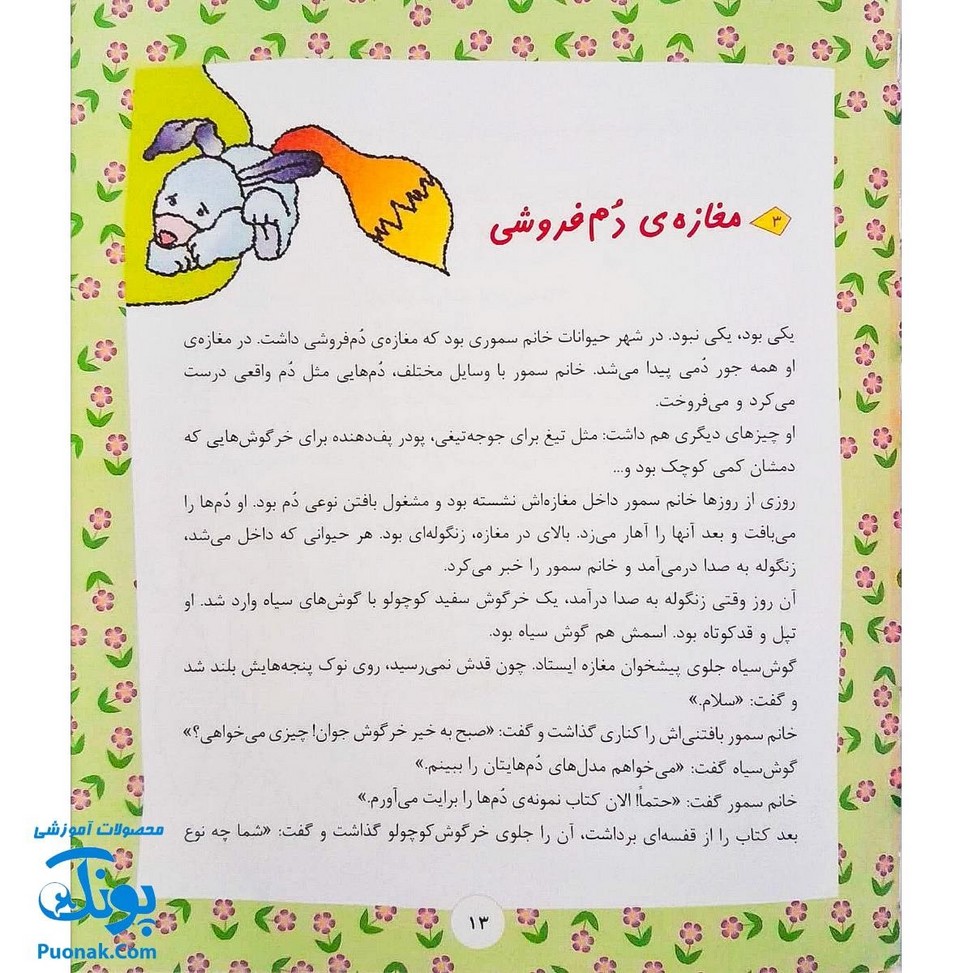 ۳
مغازه‌ی دُم‌فروشی
یکی بود، یکی نبود. در شهر حیوانات خانم سموری بود که مغازه‌ی دُم‌فروشی داشت. در مغازه‌ی
او همه جور دُمی پیدا می‌شد. خانم سمور با وسایل مختلف، دُم‌هایی مثل دُم واقعی درست
می‌کرد و می‌فروخت.
او چیزهای دیگری هم داشت: مثل تیغ برای جوجه‌تیغی، پودر پف‌دهنده برای خرگوش‌هایی که
دمشان کمی کوچک بود و...
روزی از روزها خانم سمور داخل مغازه‌اش نشسته بود و مشغول بافتن نوعی دُم بود. او دُم‌ها را
می‌بافت و بعد آنها را آهار می‌زد. بالای در مغازه، زنگوله‌ای بود. هر حیوانی که داخل می‌شد،
زنگوله به صدا درمی‌آمد و خانم سمور را خبر می‌کرد.
آن روز وقتی زنگوله به صدا درآمد، یک خرگوش سفید کوچولو با گوش‌های سیاه وارد شد. او
تپل و قدکوتاه بود. اسمش هم گوش سیاه بود.
گوش‌سیاه جلوی پیشخوان مغازه ایستاد. چون قدش نمی‌رسید، روی نوک پنجه‌هایش بلند شد
و گفت: «سلام.»
خانم سمور بافتنی‌اش را کناری گذاشت و گفت: «صبح به خیر خرگوش جوان! چیزی می‌خواهی؟»
گوش‌سیاه گفت: «می‌خواهم مدل‌های دُم‌هایتان را ببینم.»
خانم سمور گفت: «حتماً! الان کتاب نمونه‌ی دُم‌ها را برایت می‌آورم.»
بعد کتاب را از قفسه‌ای برداشت، آن را جلوی خرگوش‌کوچولو گذاشت و گفت: «شما چه نوع
۱۳
محصولات آموزشی
پونک
Puonak.Com